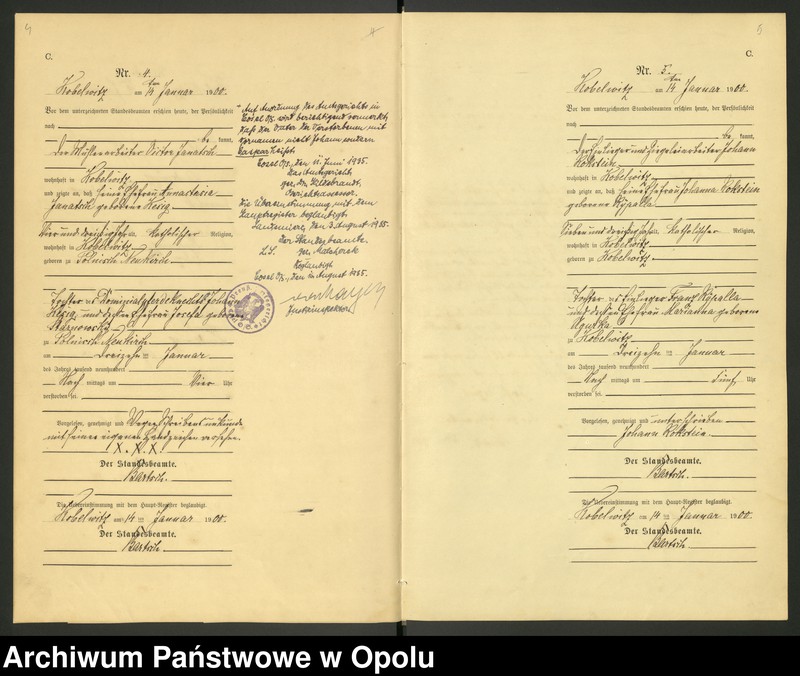 C.
Nr. 4.
Kobelwitz am 14ten Januar 1900.
Vor dem unterzeichneten Standesbeamten erschien heute, der Persönlichkeit
nach
be kannt,
der Müllerarbeiter Victor Janatsch
wohnhaft in Kobelwitz
und zeigte an, daß seine Ehefrau Anastasia
Janatsch geborene
Vier und dreißig Jahre, katholischer Religion,
wohnhaft in Kobelwitz
geboren zu Polnisch Neukirch
Tochter des
und dessen Ehefrau Josefa geborene
zu Polnisch Neukirch
am Dreizehn ten Januar
des Jahres tausend neunhundert
Nach mittags um Vier Uhr
verstorben sei.
Vorgelesen, genehmigt und Wegen Schreibensunkunde
mit seinem eigenen Handzeichen versehen.
X.X.X.
Der Standesbeamte.
Bartsch.
Die Uebereinstimmung mit dem Haupt-Register beglaubigt.
Kobelwitz am 14ten Januar 1900.
Der Standesbeamte.
Bartsch.
Auf Anordnung des Amtsgerichts in
Cosel O/S. wird berichtigend vermerkt,
daß der Vater der Verstorbenen mit
Vornamen nicht Johann sondern
Kaspar heißt.
Cosel O/S., den 11. Juni 1935.
Das Amtsgericht
gez. Dr. Hildebrandt,
Gerichtsassessor.
Die Übereinstimmung mit dem
Hauptregister beglaubigt.
den 3. August 1935.
Der Standesbeamte.
L.S. gez.
Beglaubigt
Cosel O/S., den August 1935.
Justizinspektor
5
C.
Nr. 5.
Kobelwitz am 14ten Januar 1900.
Vor dem unterzeichneten Standesbeamten erschien heute, der Persönlichkeit
nach
be kannt,
der Einlieger und Ziegeleiarbeiter Johann
Kokstein
wohnhaft in Kobelwitz
und zeigte an, daß seine Ehefrau Johanna Kokstein
geborene Kÿpalla
Sieben und dreißig Jahre, katholischer Religion,
wohnhaft in Kobelwitz
geboren zu Kobelwitz
Tochter des Einlieger Franz Kÿpalla
und dessen Ehefrau Marianna geborene
zu Kobelwitz
am Dreizehn ten Januar
des Jahres tausend neunhundert
Nach mittags um Fünf Uhr
verstorben sei.
Vorgelesen, genehmigt und unterschrieben
Johann Kokstein.
Der Standesbeamte.
Bartsch.
Die Uebereinstimmung mit dem Haupt-Register beglaubigt.
Kobelwitz am 14ten Januar 1900.
Der Standesbeamte.
Bartsch.
Archiwum Państwowe w Opolu